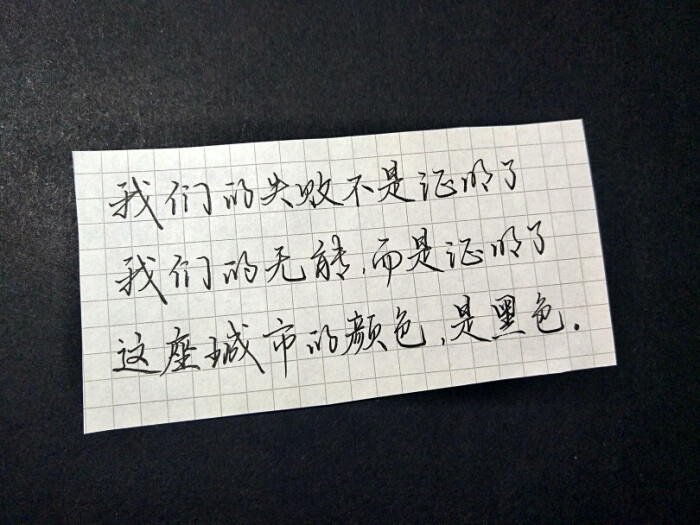 我们的失败不是证明了
我们的无能,而是证明了
这座城市的颜色,是黑色.